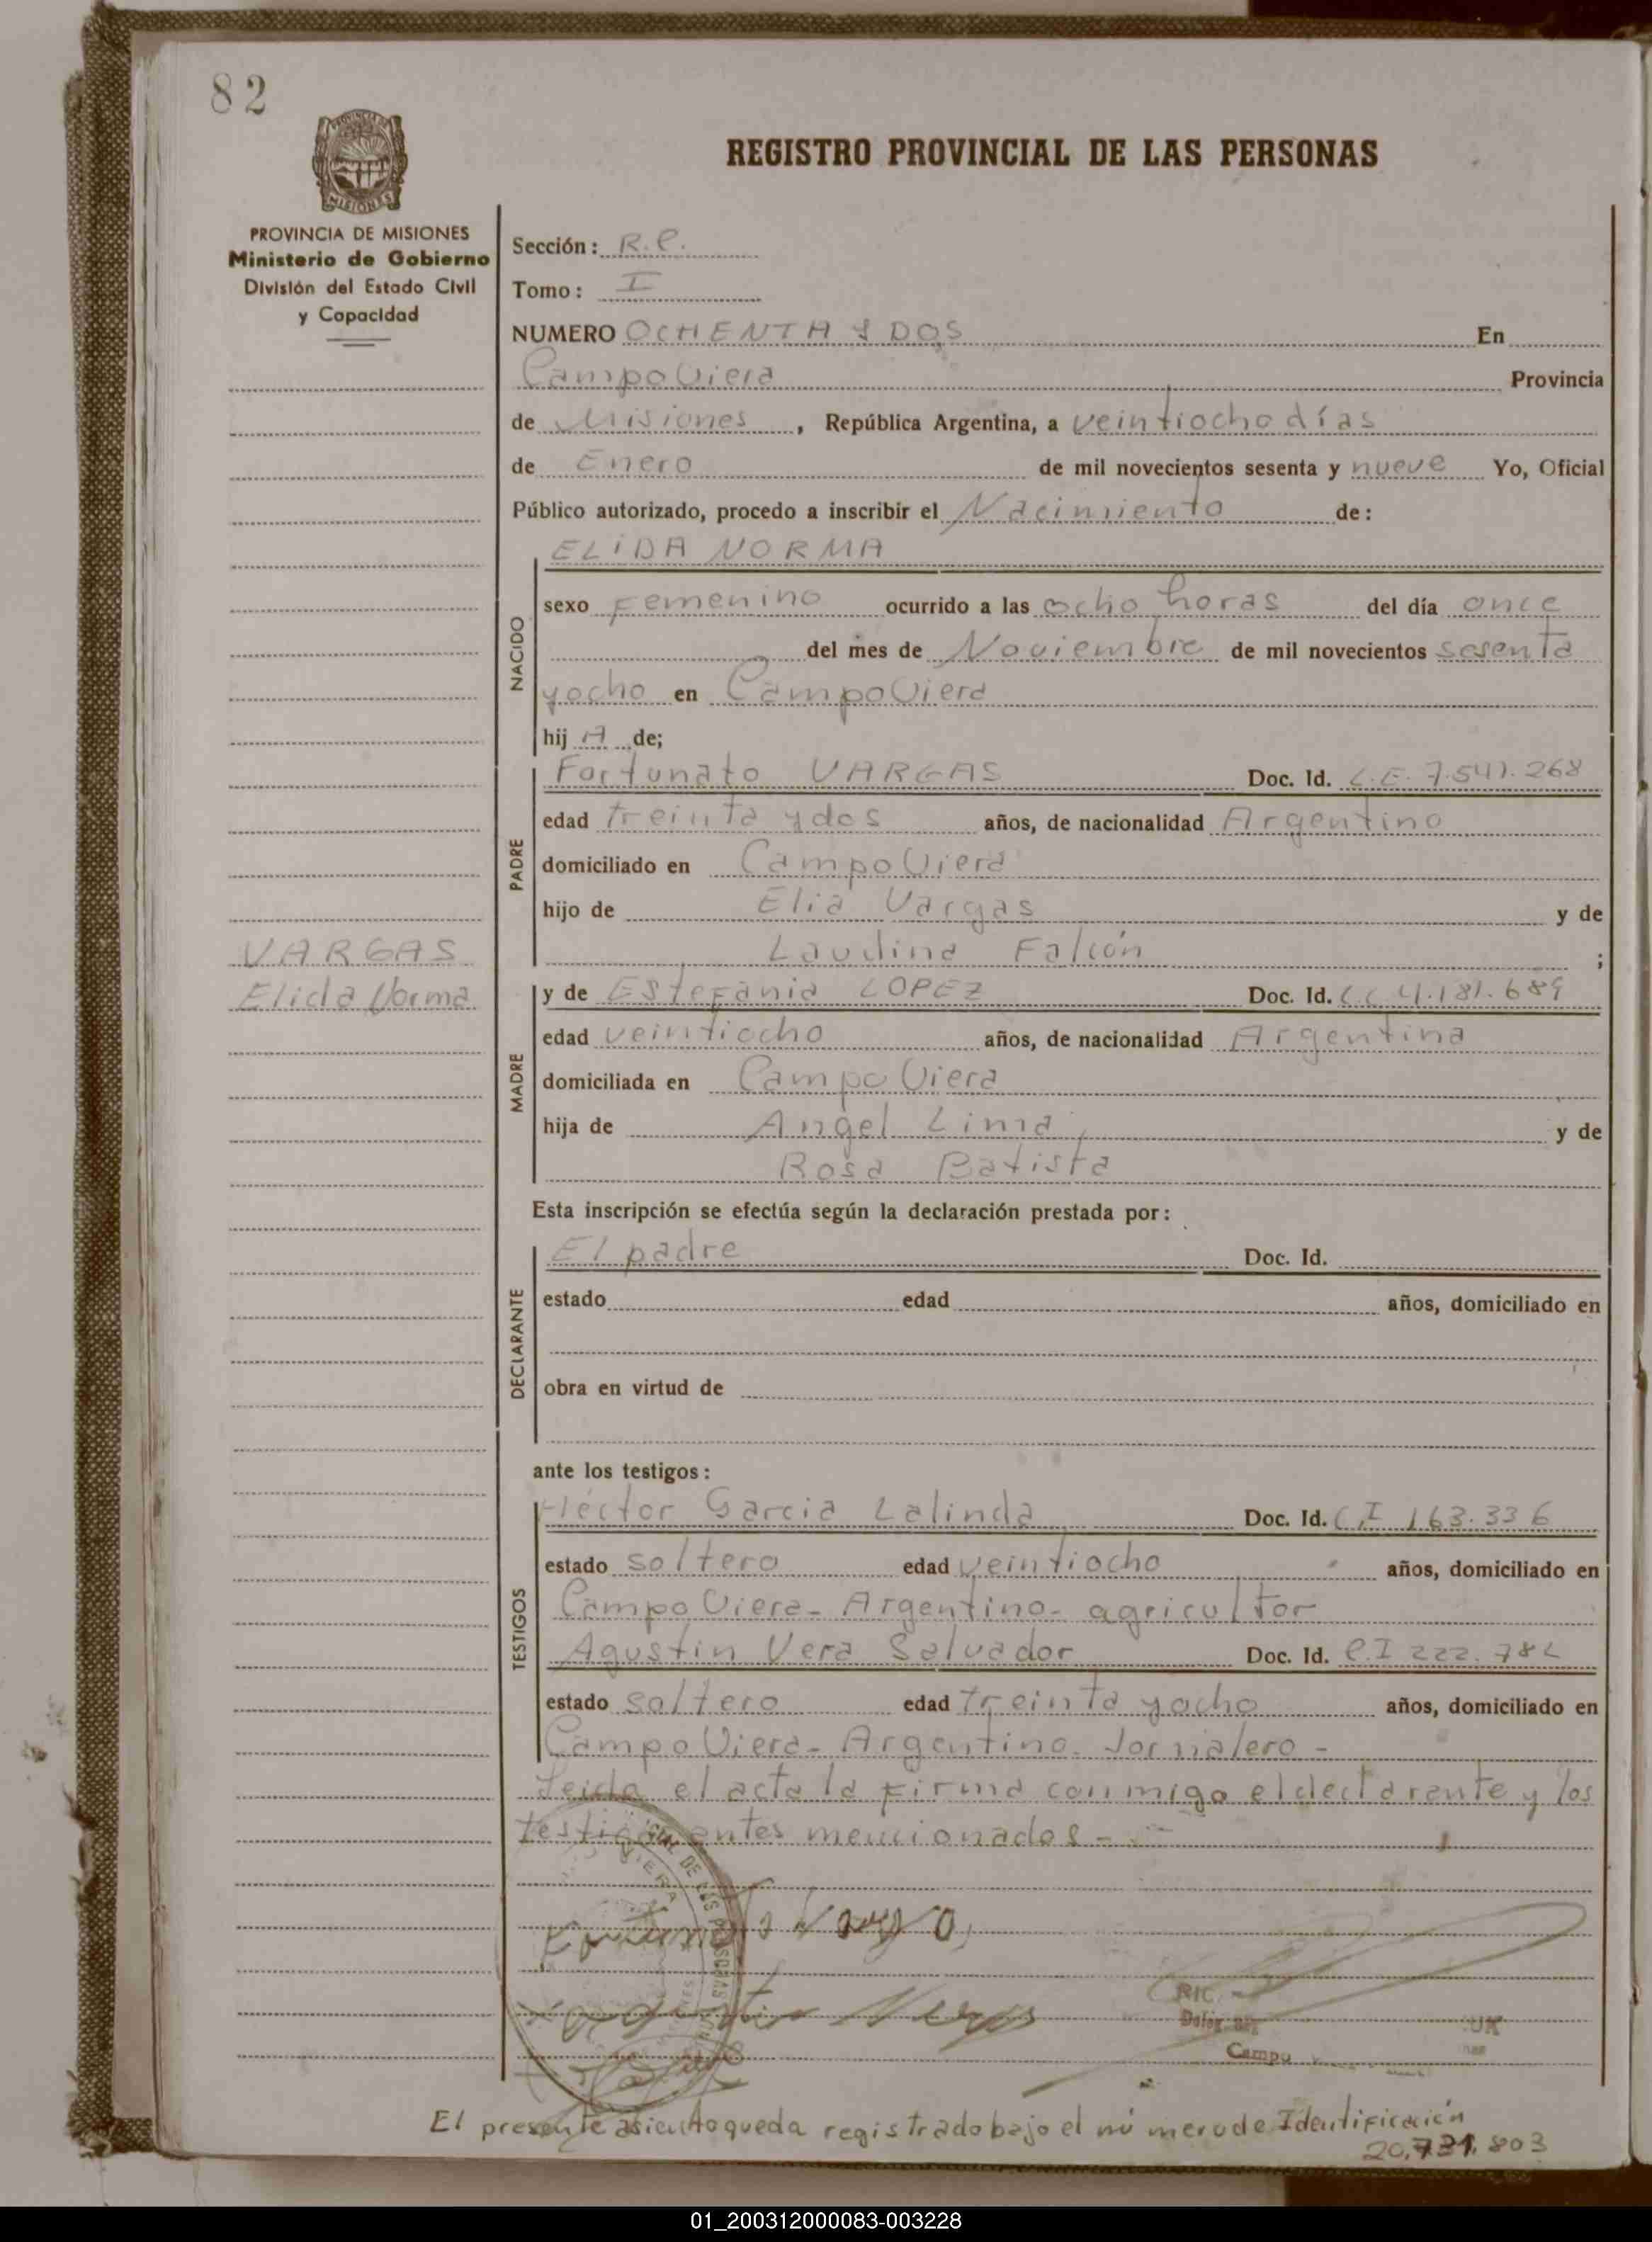 82
PROVINCIA DE MISIONES
Ministerio de Gobierno
División del Estado Civil
y Capacidad
REGISTRO PROVINCIAL DE LAS PERSONAS
Sección: R.C.
Tomo: I
NUMERO OCHENTA Y DOS En
Campo Viera Provincia
de Misiones, República Argentina, a veintiocho días
de Enero de mil novecientos sesenta y nueve Yo, Oficial
Público autorizado, procedo a inscribir el Nacimiento de:
ELIDA NORMA
NACIDO
sexo Femenino ocurrido a las ocho horas del día once
del mes de Noviembre de mil novecientos sesenta
y ocho en Campo Viera
hij A de;
PADRE
Fortunato VARGAS Doc. Id. L.E. 7.541.268
edad treinta y dos años, de nacionalidad Argentino
domiciliado en Campo Viera
hijo de Elia Vargas y de
Laudina Falcón ;
VARGAS
Elida Norma
MADRE
y de Estefania LOPEZ Doc. Id. L.C 4.181.689
edad veintiocho años, de nacionalidad Argentina
domiciliada en Campo Viera
hija de Angel Lima y de
Rosa Batista
Esta inscripción se efectúa según la declaración prestada por:
DECLARANTE
El padre Doc. Id.
estado edad años, domiciliado en
obra en virtud de
ante los testigos:
TESTIGOS
Héctor Garcia Lalinda Doc. Id. C.I 163.336
estado soltero edad veintiocho años, domiciliado en
Campo Viera- Argentino- agricultor
Agustin Vera Salvador Doc. Id. C.I 222.782
estado soltero edad treinta y ocho años, domiciliado en
Campo Viera- Argentino- Jornalero-
Leida el acta la firma conmigo el declarante y los
testigo antes mencionados-
RIC.
Campo
El presente asiento queda registrado bajo el número de Identificación
20.731.803
01_200312000083-003228